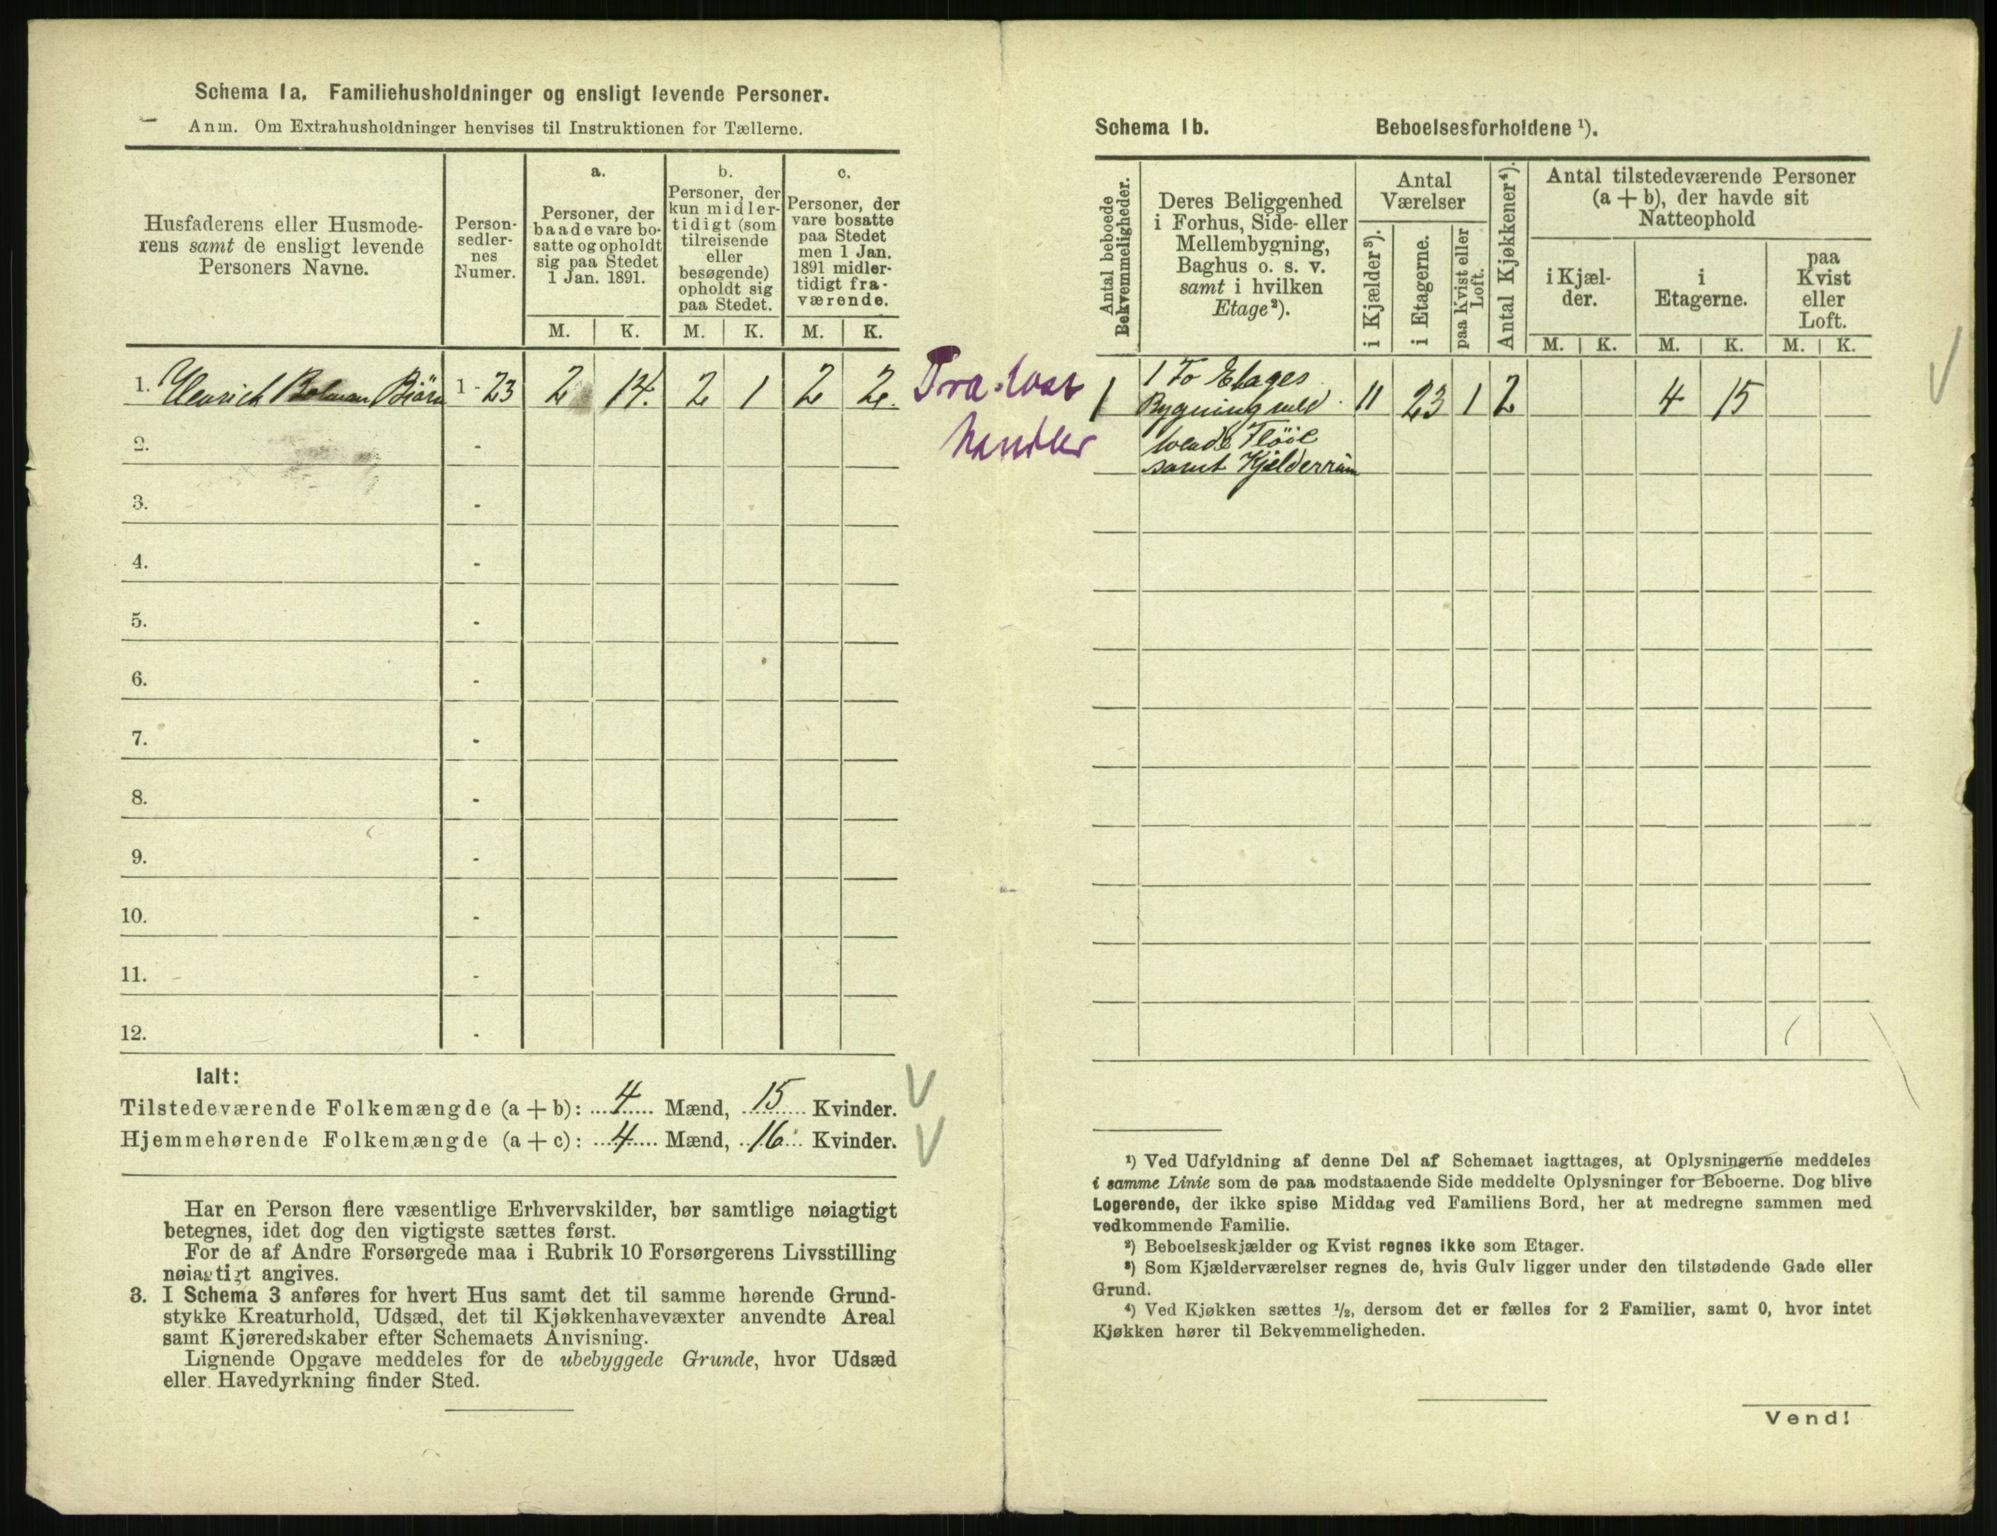 Schema 1a. Familiehusholdninger og ensligt levende Personer.
Anm. Om Extrahusholdninger henvises til Instruktionen for Tællerne.
Husfaderens eller Husmoderens samt de ensligt levende Personers Navne.
Personsedlernes Numer.
a.
Personer, der baade vare bosatte og opholdt sig paa Stedet 1 Jan. 1891.
b.
Personer, der kun midlertidigt (som tilreisende eller besøgende) opholdt sig paa Stedet.
c.
Personer, der vare bosatte paa Stedet men 1 Jan. 1891 midlertidigt fraværende.
M. K. M. K. M. K.
1. Henrich Bolman Biörn 1 - 23 2 14. 2 1 2 2.
2. -
3. -
4. -
5. -
6. -
7. -
8. -
9. -
10. -
11. -
12. -
Ialt:
Tilstedeværende Folkemængde (a + b): 4 Mænd, 15 Kvinder.
Hjemmehørende Folkemængde (a + c): 4 Mænd, 16 Kvinder.
Har en Person flere væsentlige Erhvervskilder, bør samtlige nøiagtigt
betegnes, idet dog den vigtigste sættes først.
For de af Andre Forsørgede maa i Rubrik 10 Forsørgerens Livsstilling
nøiagtigt angives.
3. I Schema 3 anføres for hvert Hus samt det til samme hørende Grund-
stykke Kreaturhold, Udsæd, det til Kjøkkenhavevæxter anvendte Areal
samt Kjøreredskaber efter Schemaets Anvisning.
Lignende Opgave meddeles for de ubebyggede Grunde, hvor Udsæd
eller Havedyrkning finder Sted.
Trælast
handler
Schema 1b. Beboelsesforholdene ¹).
Antal beboede Bekvemmeligheder.
Deres Beliggenhed i Forhus, Side- eller Mellembygning, Baghus o. s. v. samt i hvilken Etage²).
Antal Værelser
i Kjælder³).
i Etagerne.
paa Kvist eller Loft.
Antal Kjøkkener⁴).
Antal tilstedeværende Personer (a + b), der havde sit Natteophold
i Kjælder.
i Etagerne.
paa Kvist eller Loft.
M. K. M. K. M. K.
1 1 To Etages 11 23 1 2 4 15
Bygning med
tvende Flöie
samt Kjælderrum
¹) Ved Udfyldning af denne Del af Schemaet iagttages, at Oplysningerne meddeles
i samme Linie som de paa modstaaende Side meddelte Oplysninger for Beboerne. Dog blive
Logerende, der ikke spise Middag ved Familiens Bord, her at medregne sammen med
vedkommende Familie.
²) Beboelseskjælder og Kvist regnes ikke som Etager.
³) Som Kjælderværelser regnes de, hvis Gulv ligger under den tilstødende Gade eller
Grund.
⁴) Ved Kjøkken sættes ½, dersom det er fælles for 2 Familier, samt 0, hvor intet
Kjøkken hører til Bekvemmeligheden.
Vend!